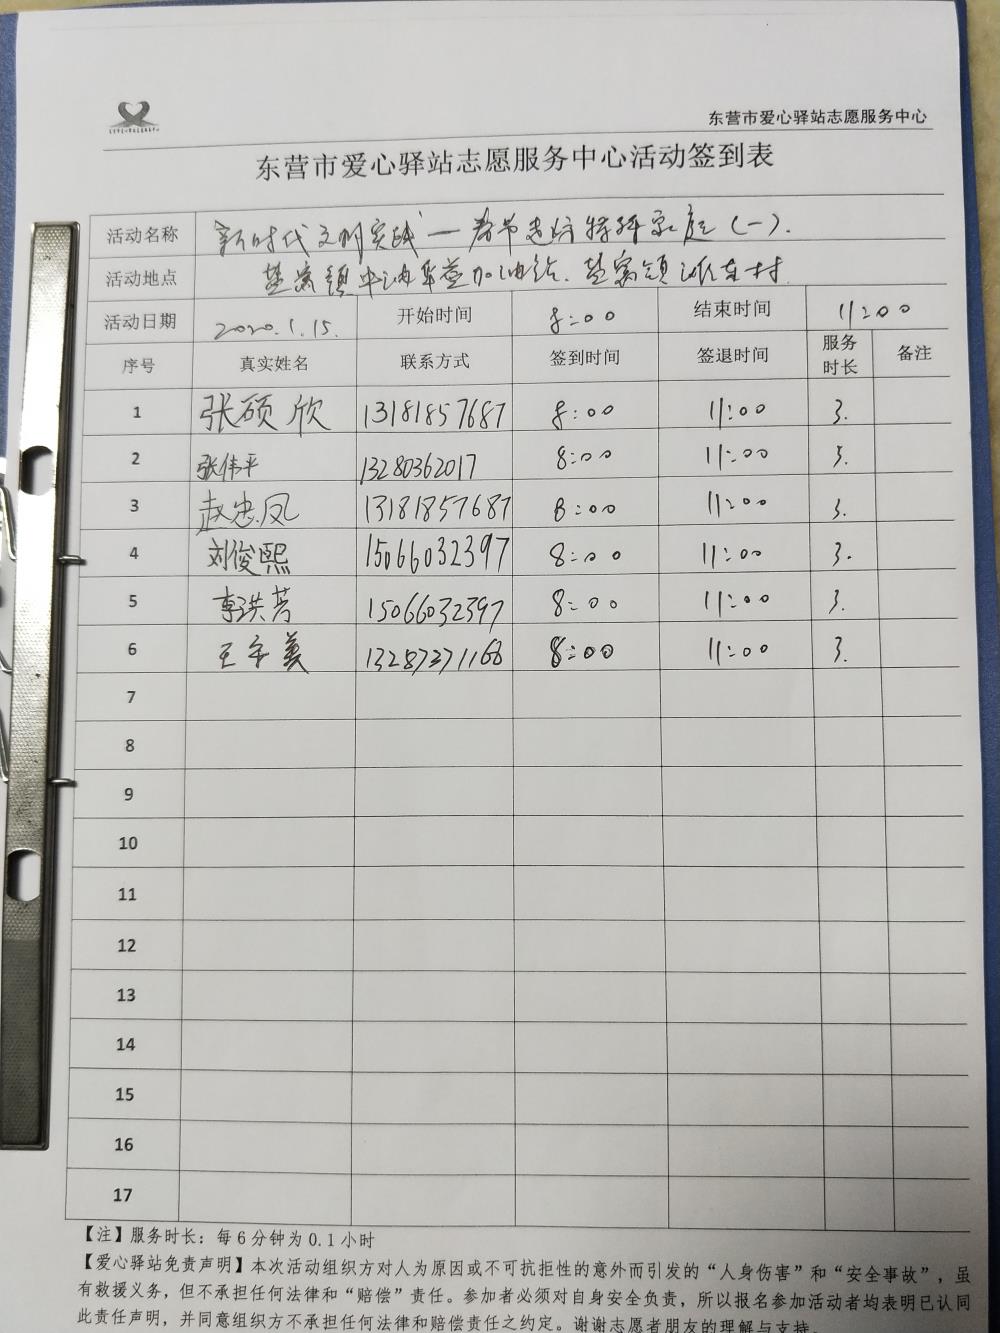 东营市爱心驿站志愿服务中心
东营市爱心驿站志愿服务中心活动签到表
活动名称 新时代文明实践一春节走访特殊家庭(一).
活动地点 盐窝镇中油车益加油站. 盐窝镇 东村.
活动日期 2020.1.15. 开始时间 8:00 结束时间 11:00
序号 真实姓名 联系方式 签到时间 签退时间 服务时长 备注
1 张硕欣 13181857687 8:00 11:00 3.
2 张伟平 13280362017 8:00 11:00 3.
3 赵忠凤 13181857687 8:00 11:00 3.
4 刘俊熙 15066032397 8:00 11:00 3.
5 李洪芳 15066032397 8:00 11:00 3.
6 王美 13287371168 8:00 11:00 3.
7
8
9
10
11
12
13
14
15
16
17
【注】服务时长：每6分钟为0.1小时
【爱心驿站免责声明】本次活动组织方对人为原因或不可抗拒性的意外而引发的“人身伤害”和“安全事故”，虽
有救援义务，但不承担任何法律和“赔偿”责任。参加者必须对自身安全负责，所以报名参加活动者均表明已认同
此责任声明，并同意组织方不承担任何法律和赔偿责任之约定。谢谢志愿者朋友的理解与支持。